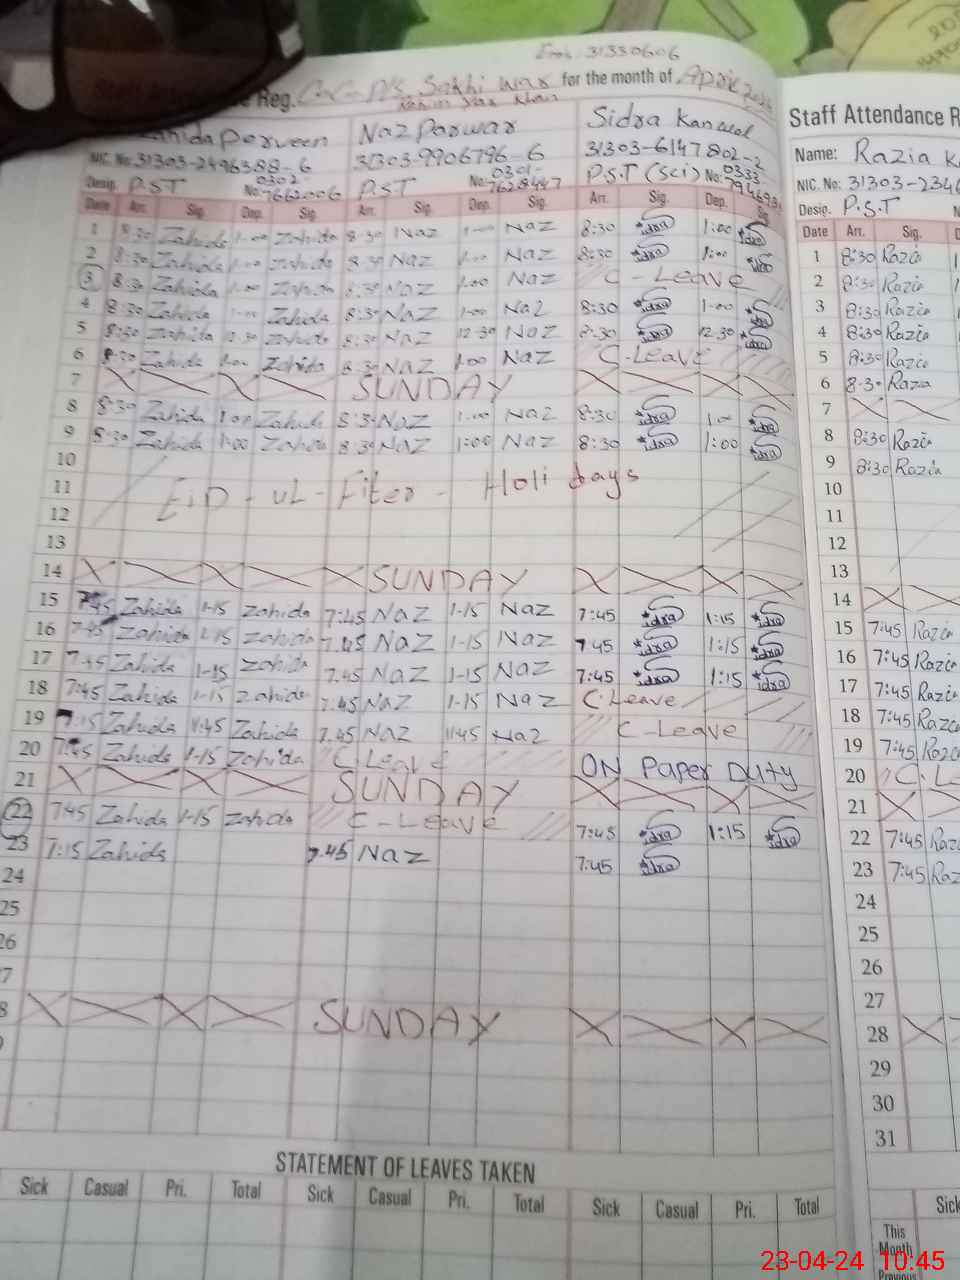 Emis: 31330606
Reg. G.G.P/S Sakhi war for the month of April 2024
Rahim Yar Khan
Zahida Parveen Naz Parwar Sidra Kanwal
NIC. No: 31303-2496388-6 31303-9906796-6 31303-6147802-2
Desig. P.ST No: 0302-7662006 P.ST No: 0301-7628447 P.S.T (Sci) No: 0333-
Date Arr. Sig. Dep. Sig. Arr. Sig. Dep. Sig. Arr. Sig. Dep. Sig.
1 8:30 Zahida 1:00 Zahida 8:30 Naz 1:00 Naz 8:30 Sidra 1:00 Sidra
2 8:30 Zahida 1:00 Zahida 8:30 Naz 1:00 Naz 8:30 Sidra 1:00 Sidra
3 8:30 Zahida 1:00 Zahida 8:30 Naz 1:00 Naz C-Leave
4 8:30 Zahida 1:00 Zahida 8:30 Naz 1:00 Naz 8:30 Sidra 1:00 Sidra
5 8:30 Zahida 12:30 Zahida 8:30 Naz 12:30 Naz 8:30 Sidra 12:30 Sidra
6 8:30 Zahida 1:00 Zahida 8:30 Naz 1:00 Naz C-Leave
7 SUNDAY
8 8:30 Zahida 1:00 Zahida 8:30 Naz 1:00 Naz 8:30 Sidra 1:00 Sidra
9 8:30 Zahida 1:00 Zahida 8:30 Naz 1:00 Naz 8:30 Sidra 1:00 Sidra
10
11 EiD - uL - Fiter - Holi days
12
13
14 SUNDAY
15 7:45 Zahida 1-15 Zahida 7:45 Naz 1-15 Naz 7:45 Sidra 1:15 Sidra
16 7:45 Zahida 1-15 Zahida 7:45 Naz 1-15 Naz 7:45 Sidra 1:15 Sidra
17 7:45 Zahida 1-15 Zahida 7:45 Naz 1-15 Naz 7:45 Sidra 1:15 Sidra
18 7:45 Zahida 1-15 Zahida 7:45 Naz 1-15 Naz C Leave
19 7:15 Zahida 11:45 Zahida 7:45 Naz 11:45 Naz C-Leave
20 7:45 Zahida 1-15 Zahida C Leave ON Paper Duty
21 SUNDAY
22 7:45 Zahida 1-15 Zahida C-Leave 7:45 Sidra 1:15 Sidra
23 7:15 Zahida 7:45 Naz 7:45 Sidra
24
25
26
7
8 SUNDAY
STATEMENT OF LEAVES TAKEN
Sick Casual Pri. Total Sick Casual Pri. Total Sick Casual Pri. Total
Staff Attendance R
Name: Razia K
NIC. No: 31303-234
Desig. P.S.T
Date Arr. Sig.
1 8:30 Razia
2 8:30 Razia
3 8:30 Razia
4 8:30 Razia
5 8:30 Razia
6 8:30 Razia
7
8 8:30 Razia
9 8:30 Razia
10
11
12
13
14
15 7:45 Razia
16 7:45 Razia
17 7:45 Razia
18 7:45 Razia
19 7:45 Razia
20 C. Le
21
22 7:45 Razi
23 7:45 Raz
24
25
26
27
28
29
30
31
Sick
This
Month
Previous
23-04-24 10:45